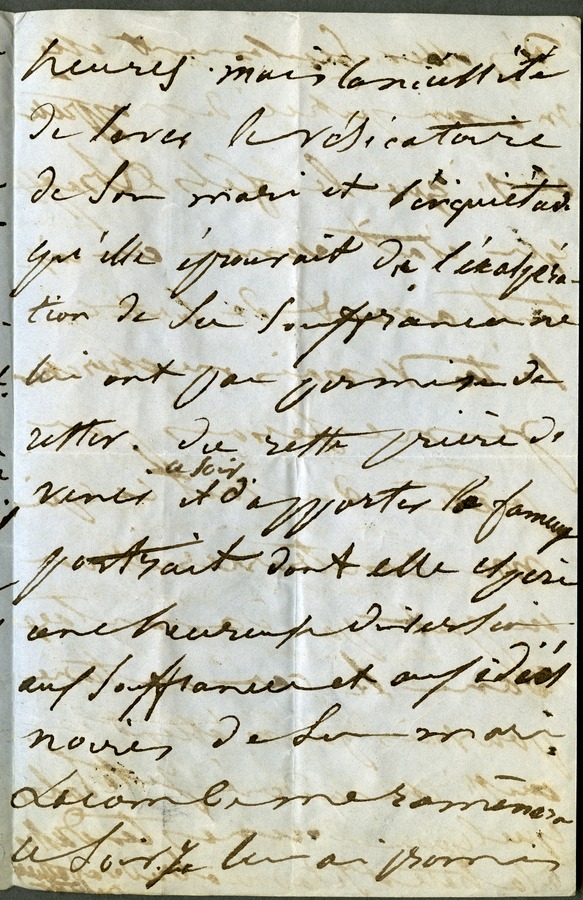 heures. mais la nécessité
de lever le vésicatoire
de son mari et l'inquiétude
qu'elle éprouvait de l'exaspéra-
tion de ses souffrances ne
lui ont pas permis de
rester. De cette prière de
venir ce soir et d'apporter le fameux
portrait dont elle espère
une heureuse diversion
aux souffrances et aux idées
noires de son mari.
Lacombe me ramènera
ce soir. Je lui ai promis